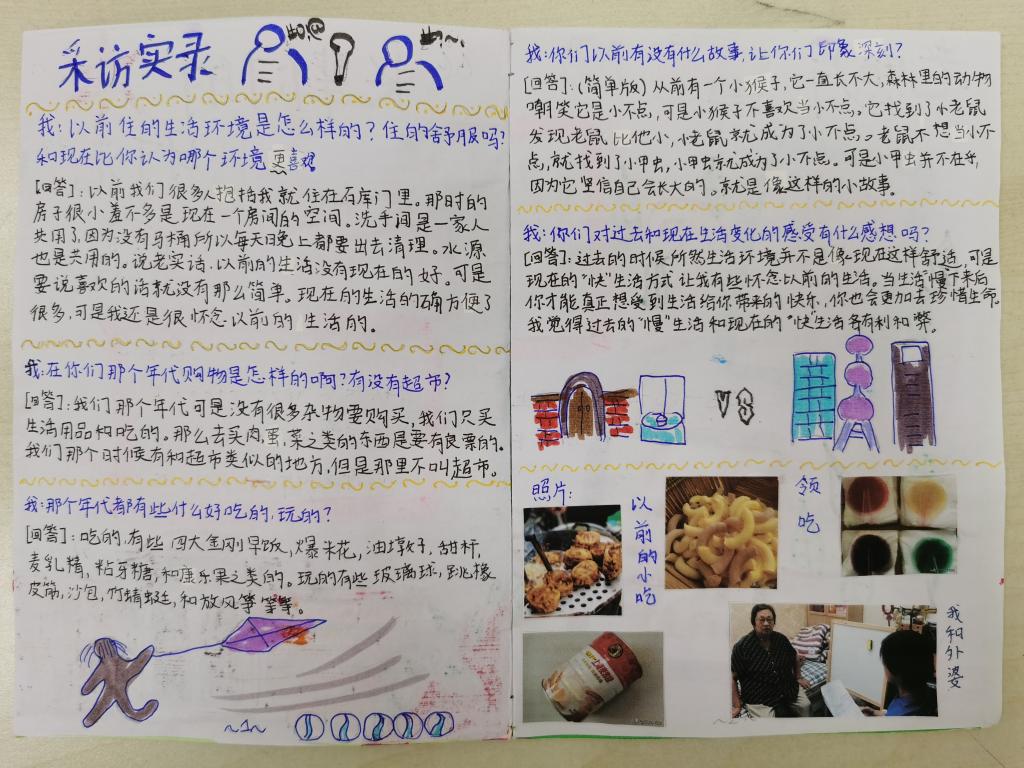 采访实录
我:以前住的生活环境是怎么样的?住的舒服吗?
和现在比你认为哪个环境更喜欢
[回答]:以前我们很多人抱括我就住在石库门里。那时的
房子很小差不多是现在一个房间的空间。洗手间是一家人
共用了,因为没有马桶所以每天晚上都要出去清理。水源
也是共用的。说老实话,以前的生活没有现在的好。可是
要说喜欢的话就没有那么简单。现在的生活的确方便了
很多,可是我还是很怀念以前的生活的。
我:在你们那个年代购物是怎样的啊?有没有超市?
[回答]:我们那个年代可是没有很多杂物要购买,我们只买
生活用品和吃的。那么去买肉,蛋,菜之类的东西是要有良票的。
我们那个时候有和超市类似的地方,但是那里不叫超市。
我:那个年代都有些什么好吃的,玩的?
[回答]:吃的,有些 四大金刚早饭,爆米花,油墩子,甜杆,
麦乳精,粘牙糖,和康乐果之类的。玩的有些玻璃球,跳橡
皮筋,沙包,竹蜻蜓,和放风筝等等。
~1~
我:你们以前有没有什么故事,让你们印象深刻?
[回答]:(简单版)从前有一个小猴子,它一直长不大,森林里的动物
嘲笑它是小不点,可是小猴子不喜欢当小不点。它找到了小老鼠
发现老鼠比他小,小老鼠就成为了小不点。老鼠不想当小不
点,就找到了小甲虫,小甲虫就成为了小不点。可是小甲虫并不在乎,
因为它坚信自己会长大的。就是像这样的小故事。
我:你们对过去和现在生活变化的感受有什么感想吗?
[回答]:过去的时候,所然生活环境并不是像现在这样舒适,可是
现在的“快”生活方式让我有些怀念以前的生活。当生活慢下来后
你才能真正想受到生活给你带来的快乐,你也会更加去珍惜生命。
我觉得过去的“慢”生活和现在的“快”生活各有利和弊。
VS
照片:
以前的小吃
领吃
我和外婆